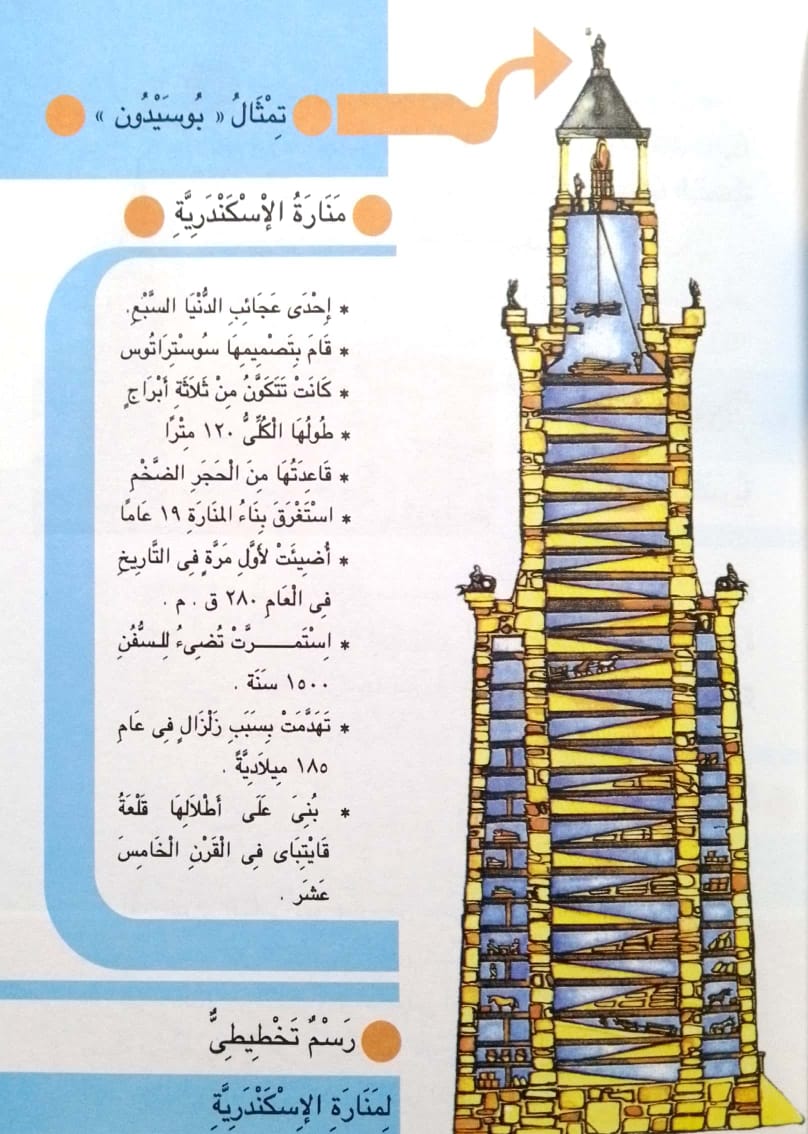 تِمْثَالُ « بُوسَيْدُون »
مَنَارَةُ الإْسْكَنْدَرِيَّةِ
* إِحْدَى عَجَائِبِ الدُّنْيَا السَّبْعِ.
* قَامَ بِتَصْمِيمِهَا سُوسْتِرَاتُوس
* كَانَتْ تَتَكَوَّنُ مِنْ ثَلاَثَةِ أَبْرَاجٍ
* طُولُهَا الْكُلِّىُّ ١٢٠ مِتْرًا
* قَاعِدَتُهَا مِنَ الْحَجَرِ الضَّخْمِ
* اسْتَغْرَقَ بِنَاءُ المْنَارَةِ ١٩ عَامًا
* أُضِيئَتْ لأَوَّلِ مَرَّةٍ فِى التَّارِيخِ
فِى الْعَامِ ٢٨٠ ق . م .
* اِسْتَمـــرَّتْ تُضِىءُ لِلسُّفُنِ
١٥٠٠ سَنَة .
* تَهَدَّمَتْ بِسَبَبِ زَلْزَالٍ فِى عَامِ
١٨٥ مِيلاَدِيَّةً .
* بُنِىَ عَلَى أَطْلاَلِهَا قَلْعَةُ
قَايْتِبَاى فِى الْقَرْنِ الْخَامِسَ
عَشَر .
رَسْمٌ تَخْطِيطِىٌّ
لِمَنَارَةِ الإِسْكَنْدَرِيَّةِ